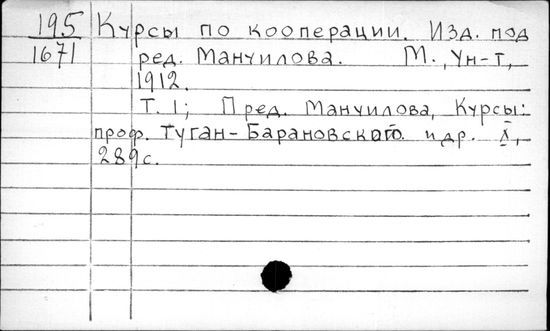 195 Курсы по кооперации. Изд. под
1671 ред. Мануилова. М., Ун-т,
1912.
Т. 1; Пред. Мануилова, Курсы:
проф. Туган-Барановского и др. X,
289с.